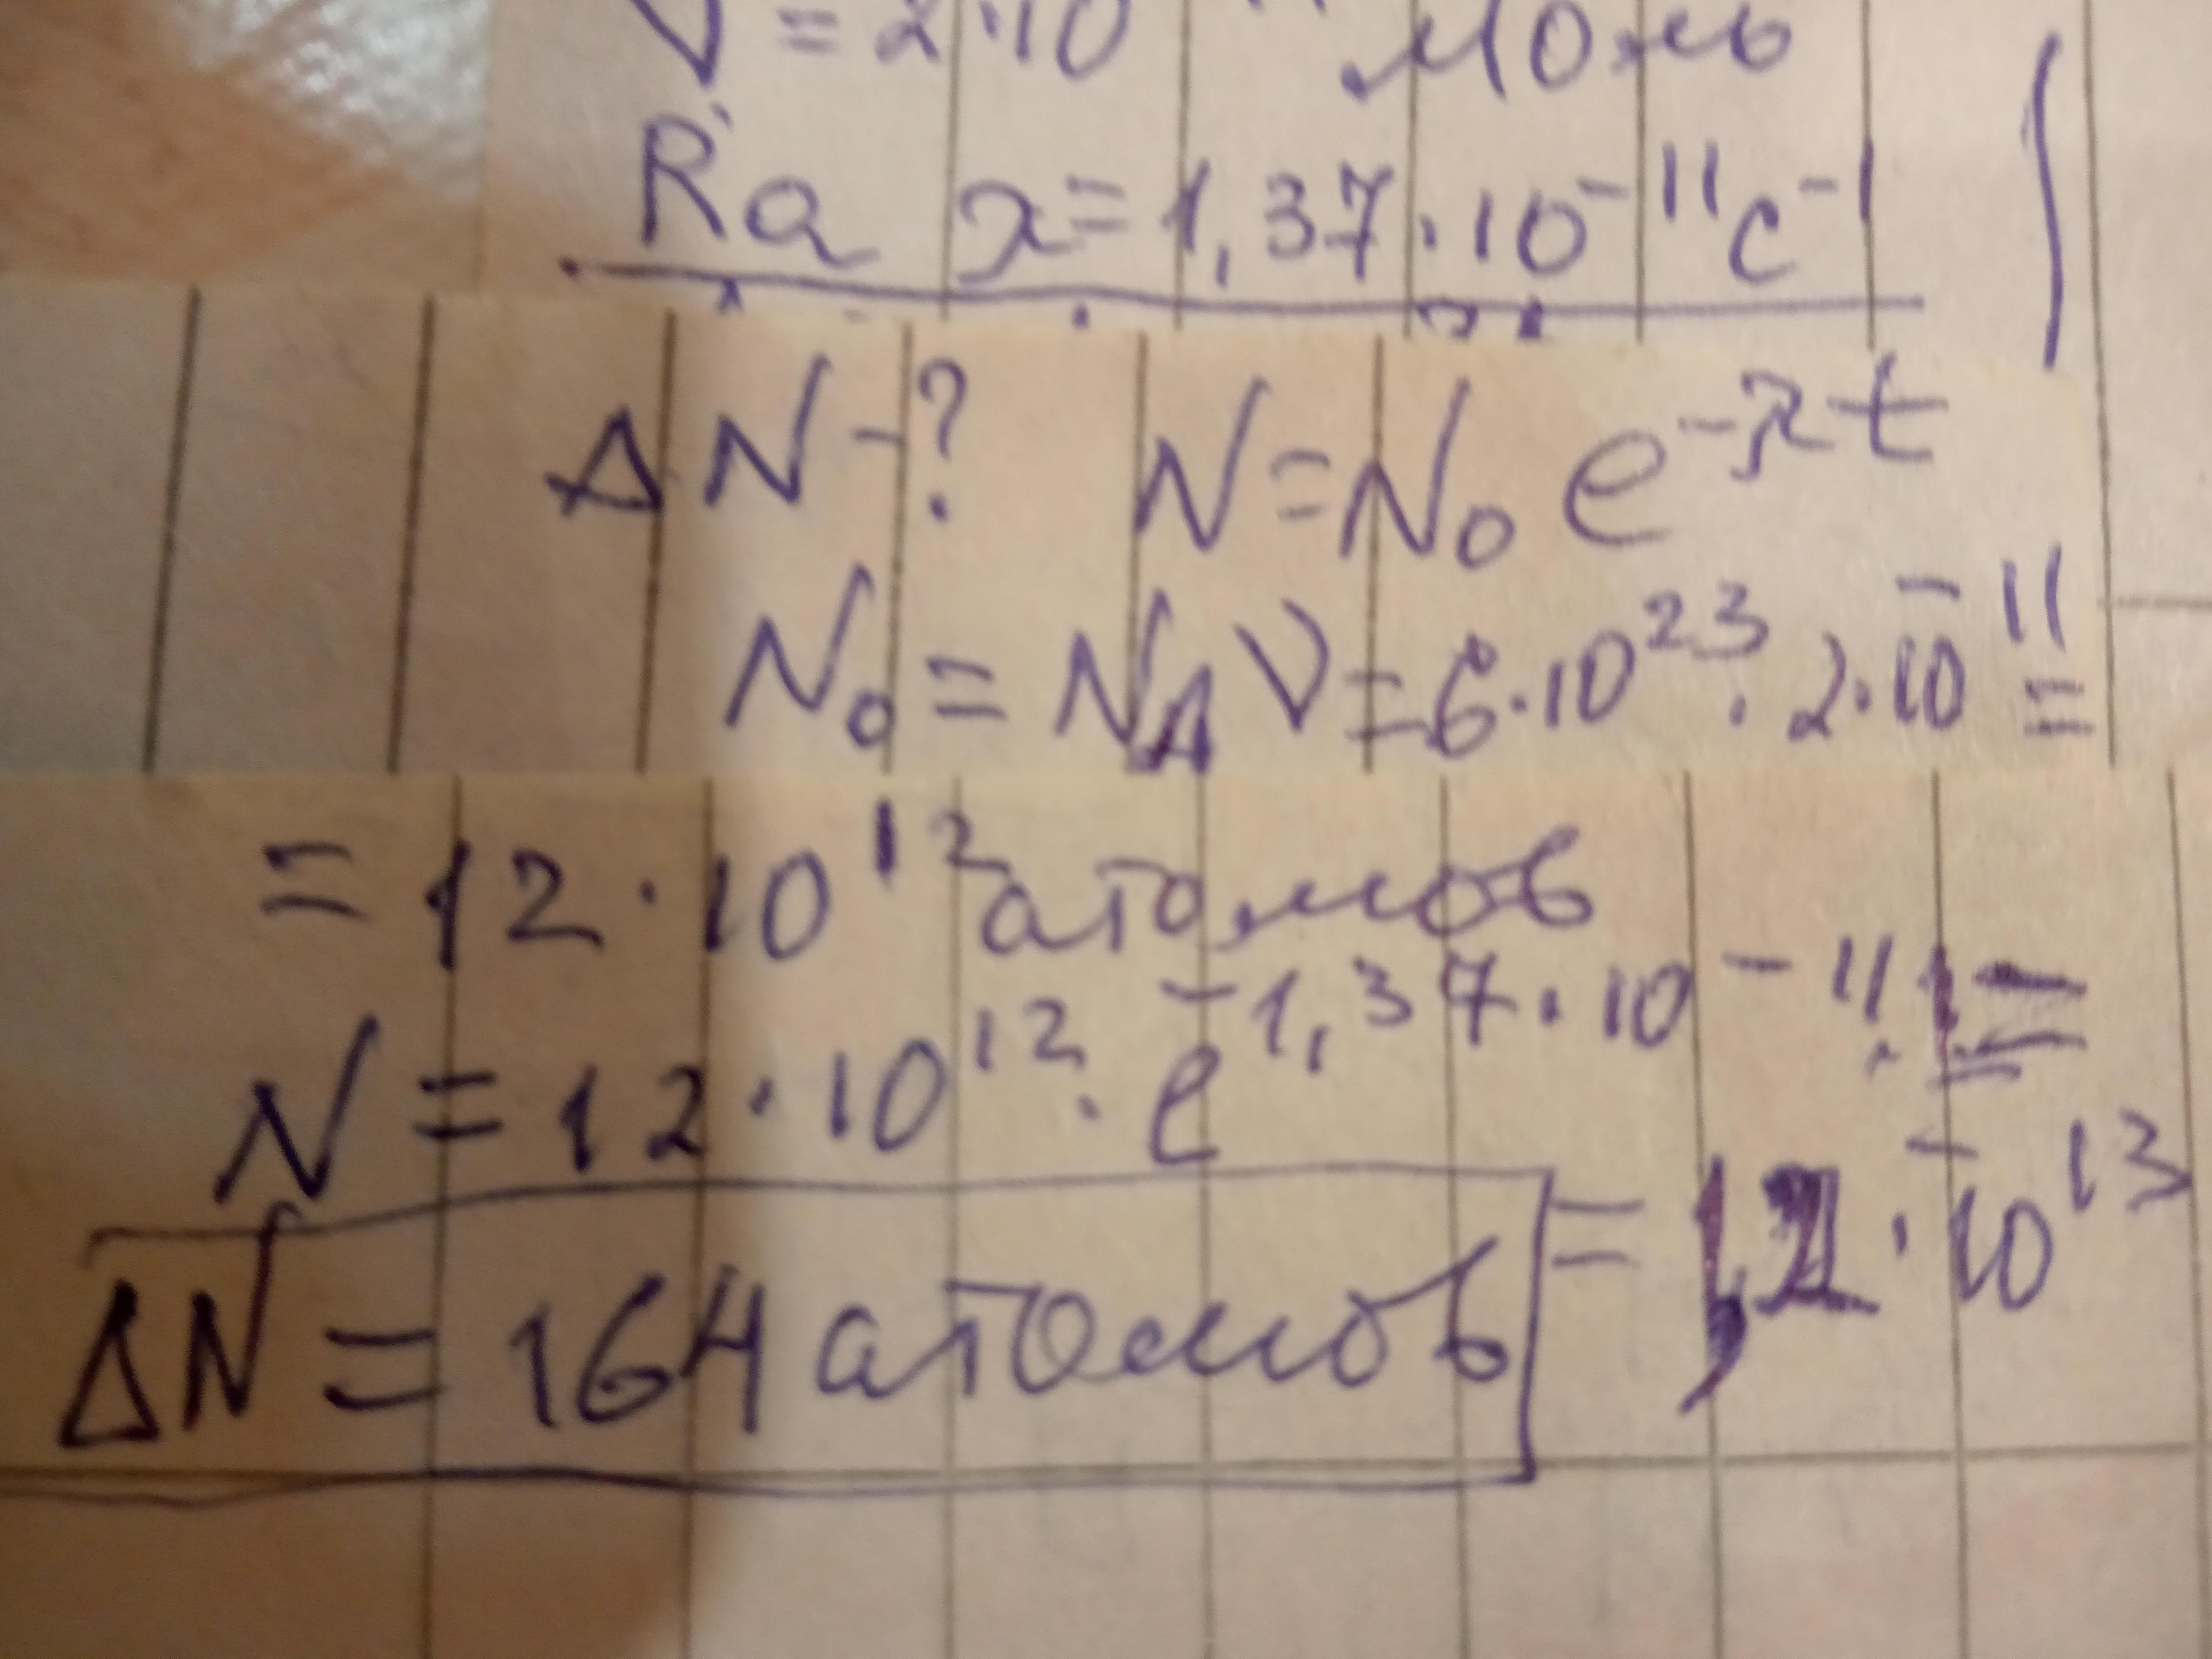 ν = 2·10⁻¹¹ моль
Ra λ = 1,37·10⁻¹¹ c⁻¹
ΔN-? N=N₀ e^-λt
N₀ = N_A ν = 6·10²³ · 2·10⁻¹¹ =
= 12·10¹² атомов
N = 12·10¹² · e^-1,37·10⁻¹¹·1 =
= 1,2·10¹³
ΔN = 164 атомов